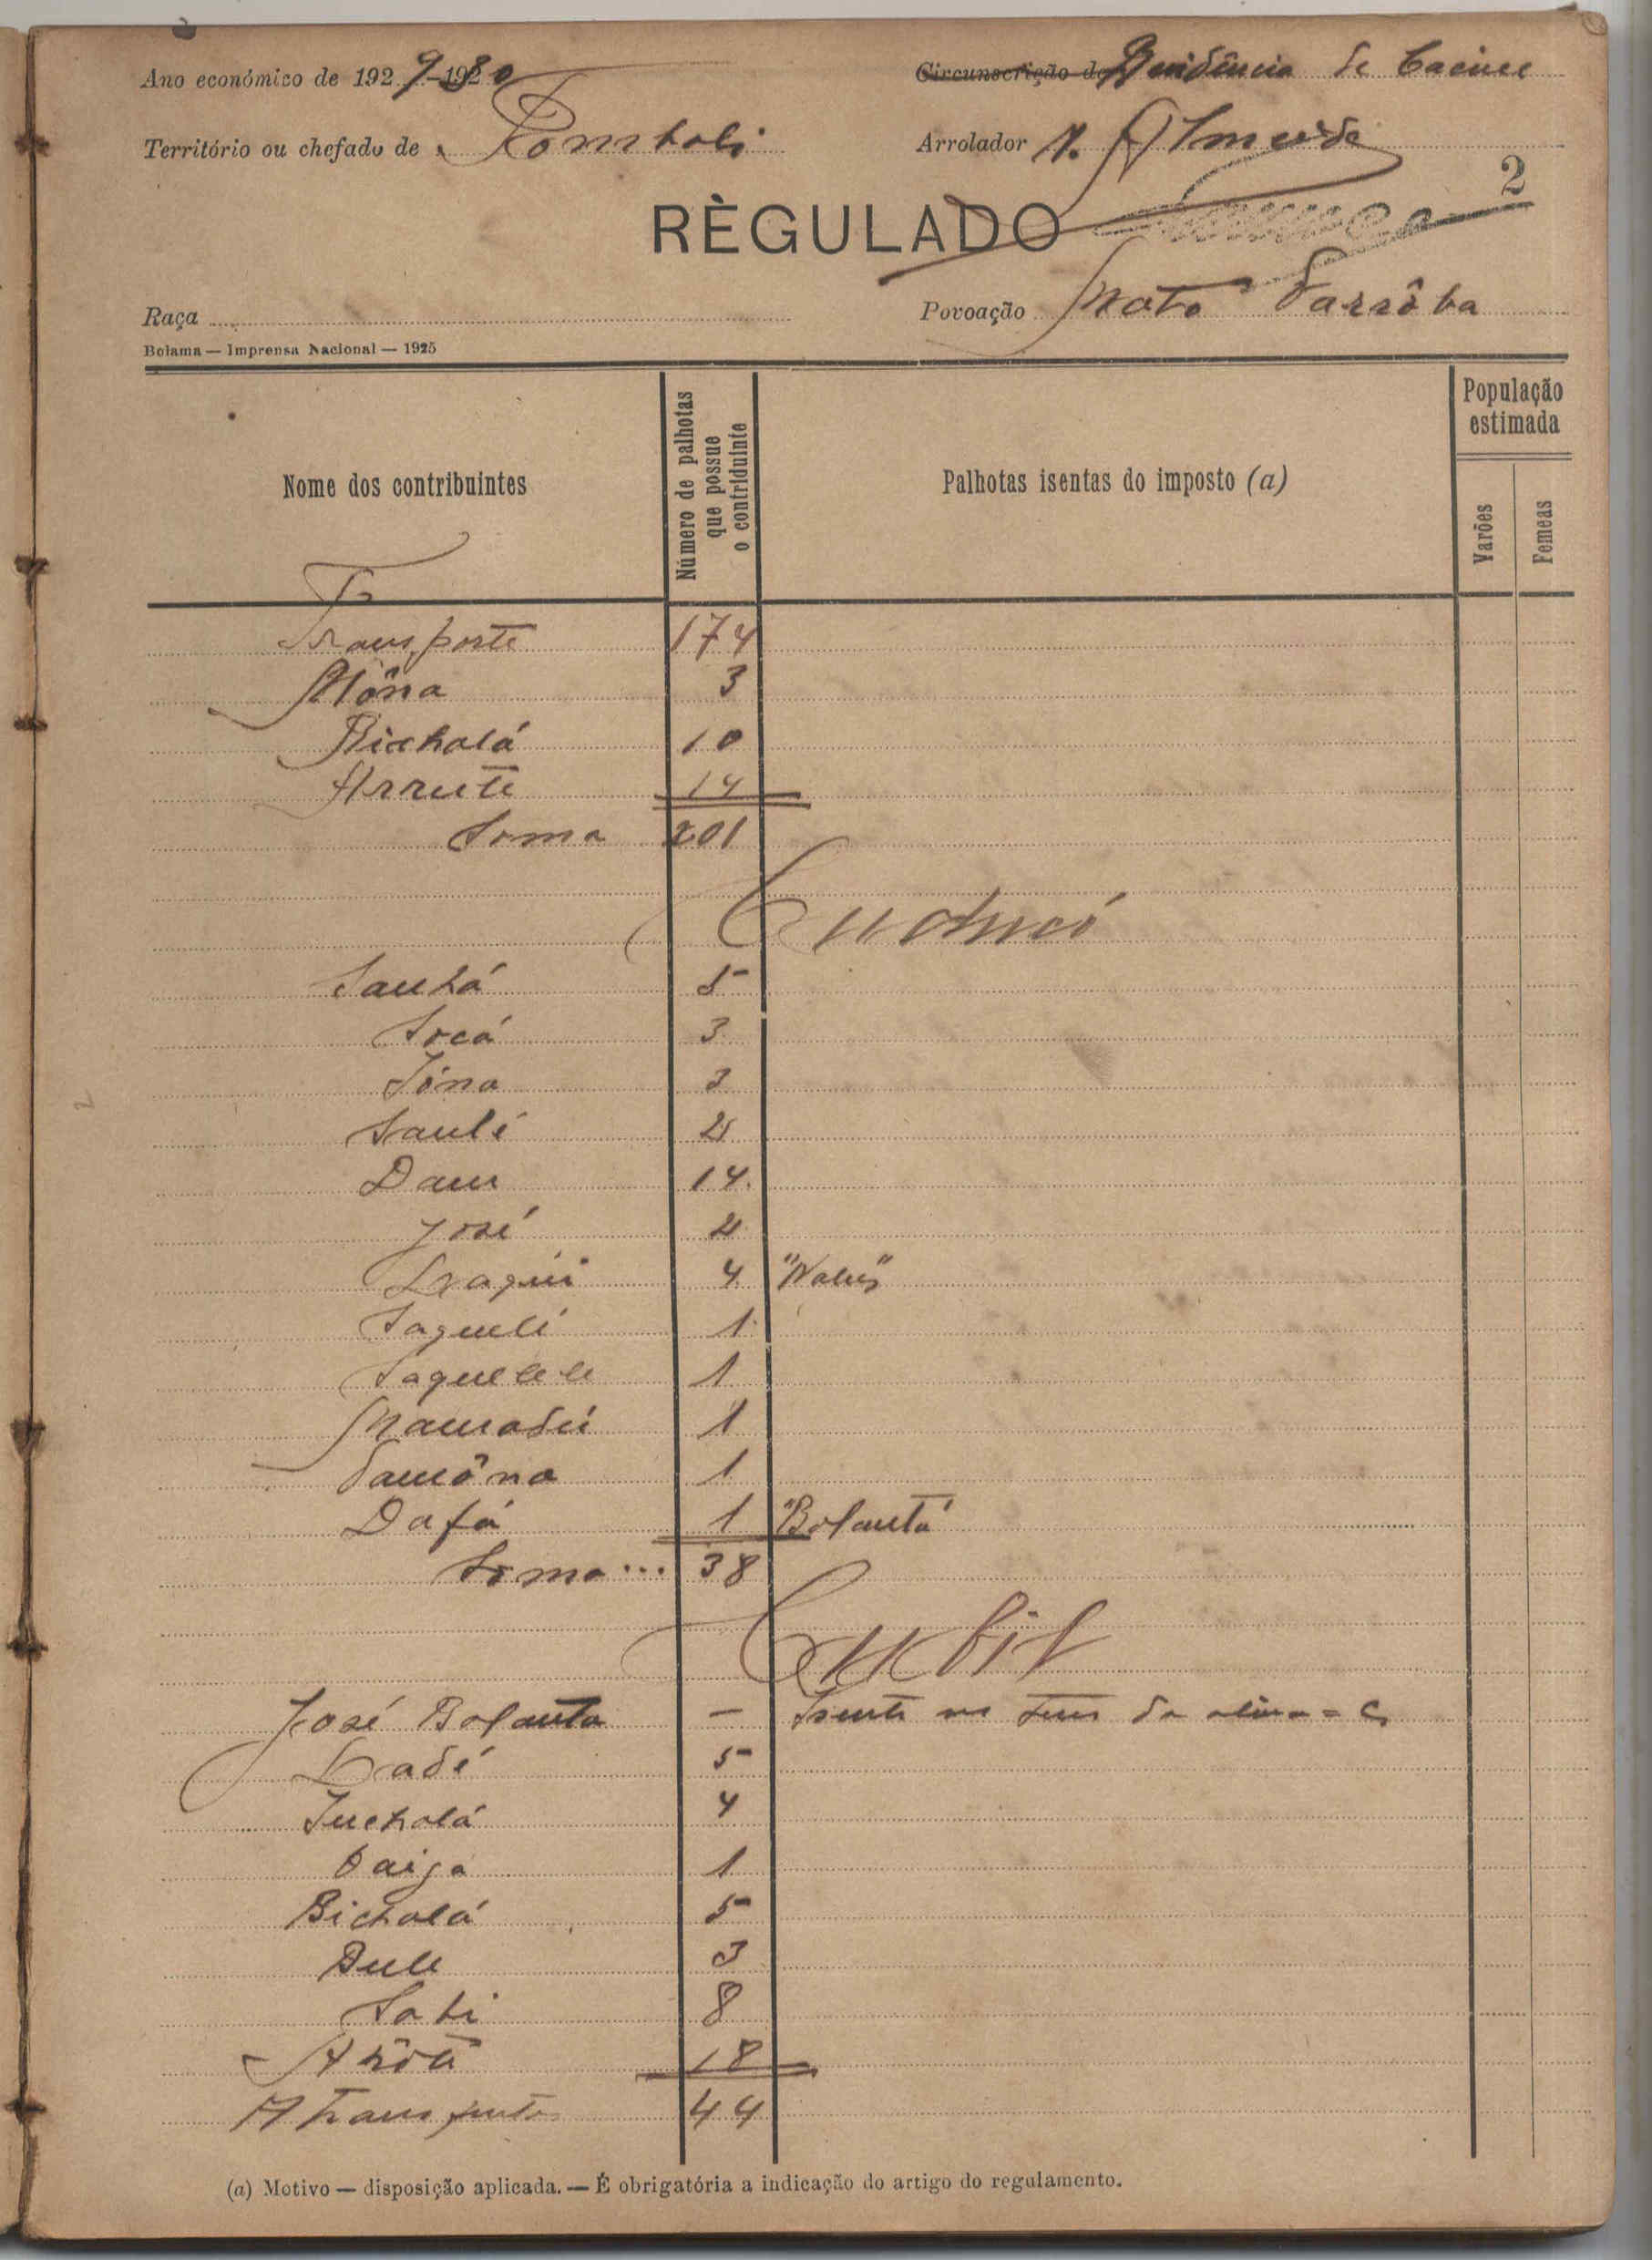 Ano económico de 1929-1930
Circunscrição de Residência de Cacine
Território ou chefado de Tombali
Arrolador A. Almeida
2
RÈGULADO
Raça
Povoação Mato Farrôba
Bolama — Imprensa Nacional — 1925
Nome dos contribuintes
Número de palhotas que possue o contriduinte
Palhotas isentas do imposto (a)
População estimada
Varões
Femeas
Transporte 174
Môna 3
Bicholá 10
Arruté 14
Soma 201
Sanhá 5
Socá 3
Jóna 3
Saulé 2
Dam 14
José 2
4 "Nalus"
Saguelé 1
1
Mamadú 1
Samôna 1
Dafá 1 "Balanta"
Soma... 38
Cubil
José Balanta —
Ladé 5
Jucholá 4
1
Bicholá 5
Dule 3
Sabi 8
18
A Transportar 44
(a) Motivo — disposição aplicada. — É obrigatória a indicação do artigo do regulamento.